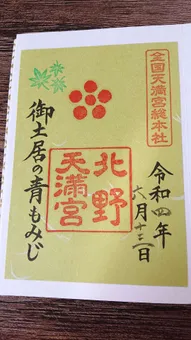 全国天満宮総本社
令和四年
六月十三日
北野
天満宮
御土居の青もみじ